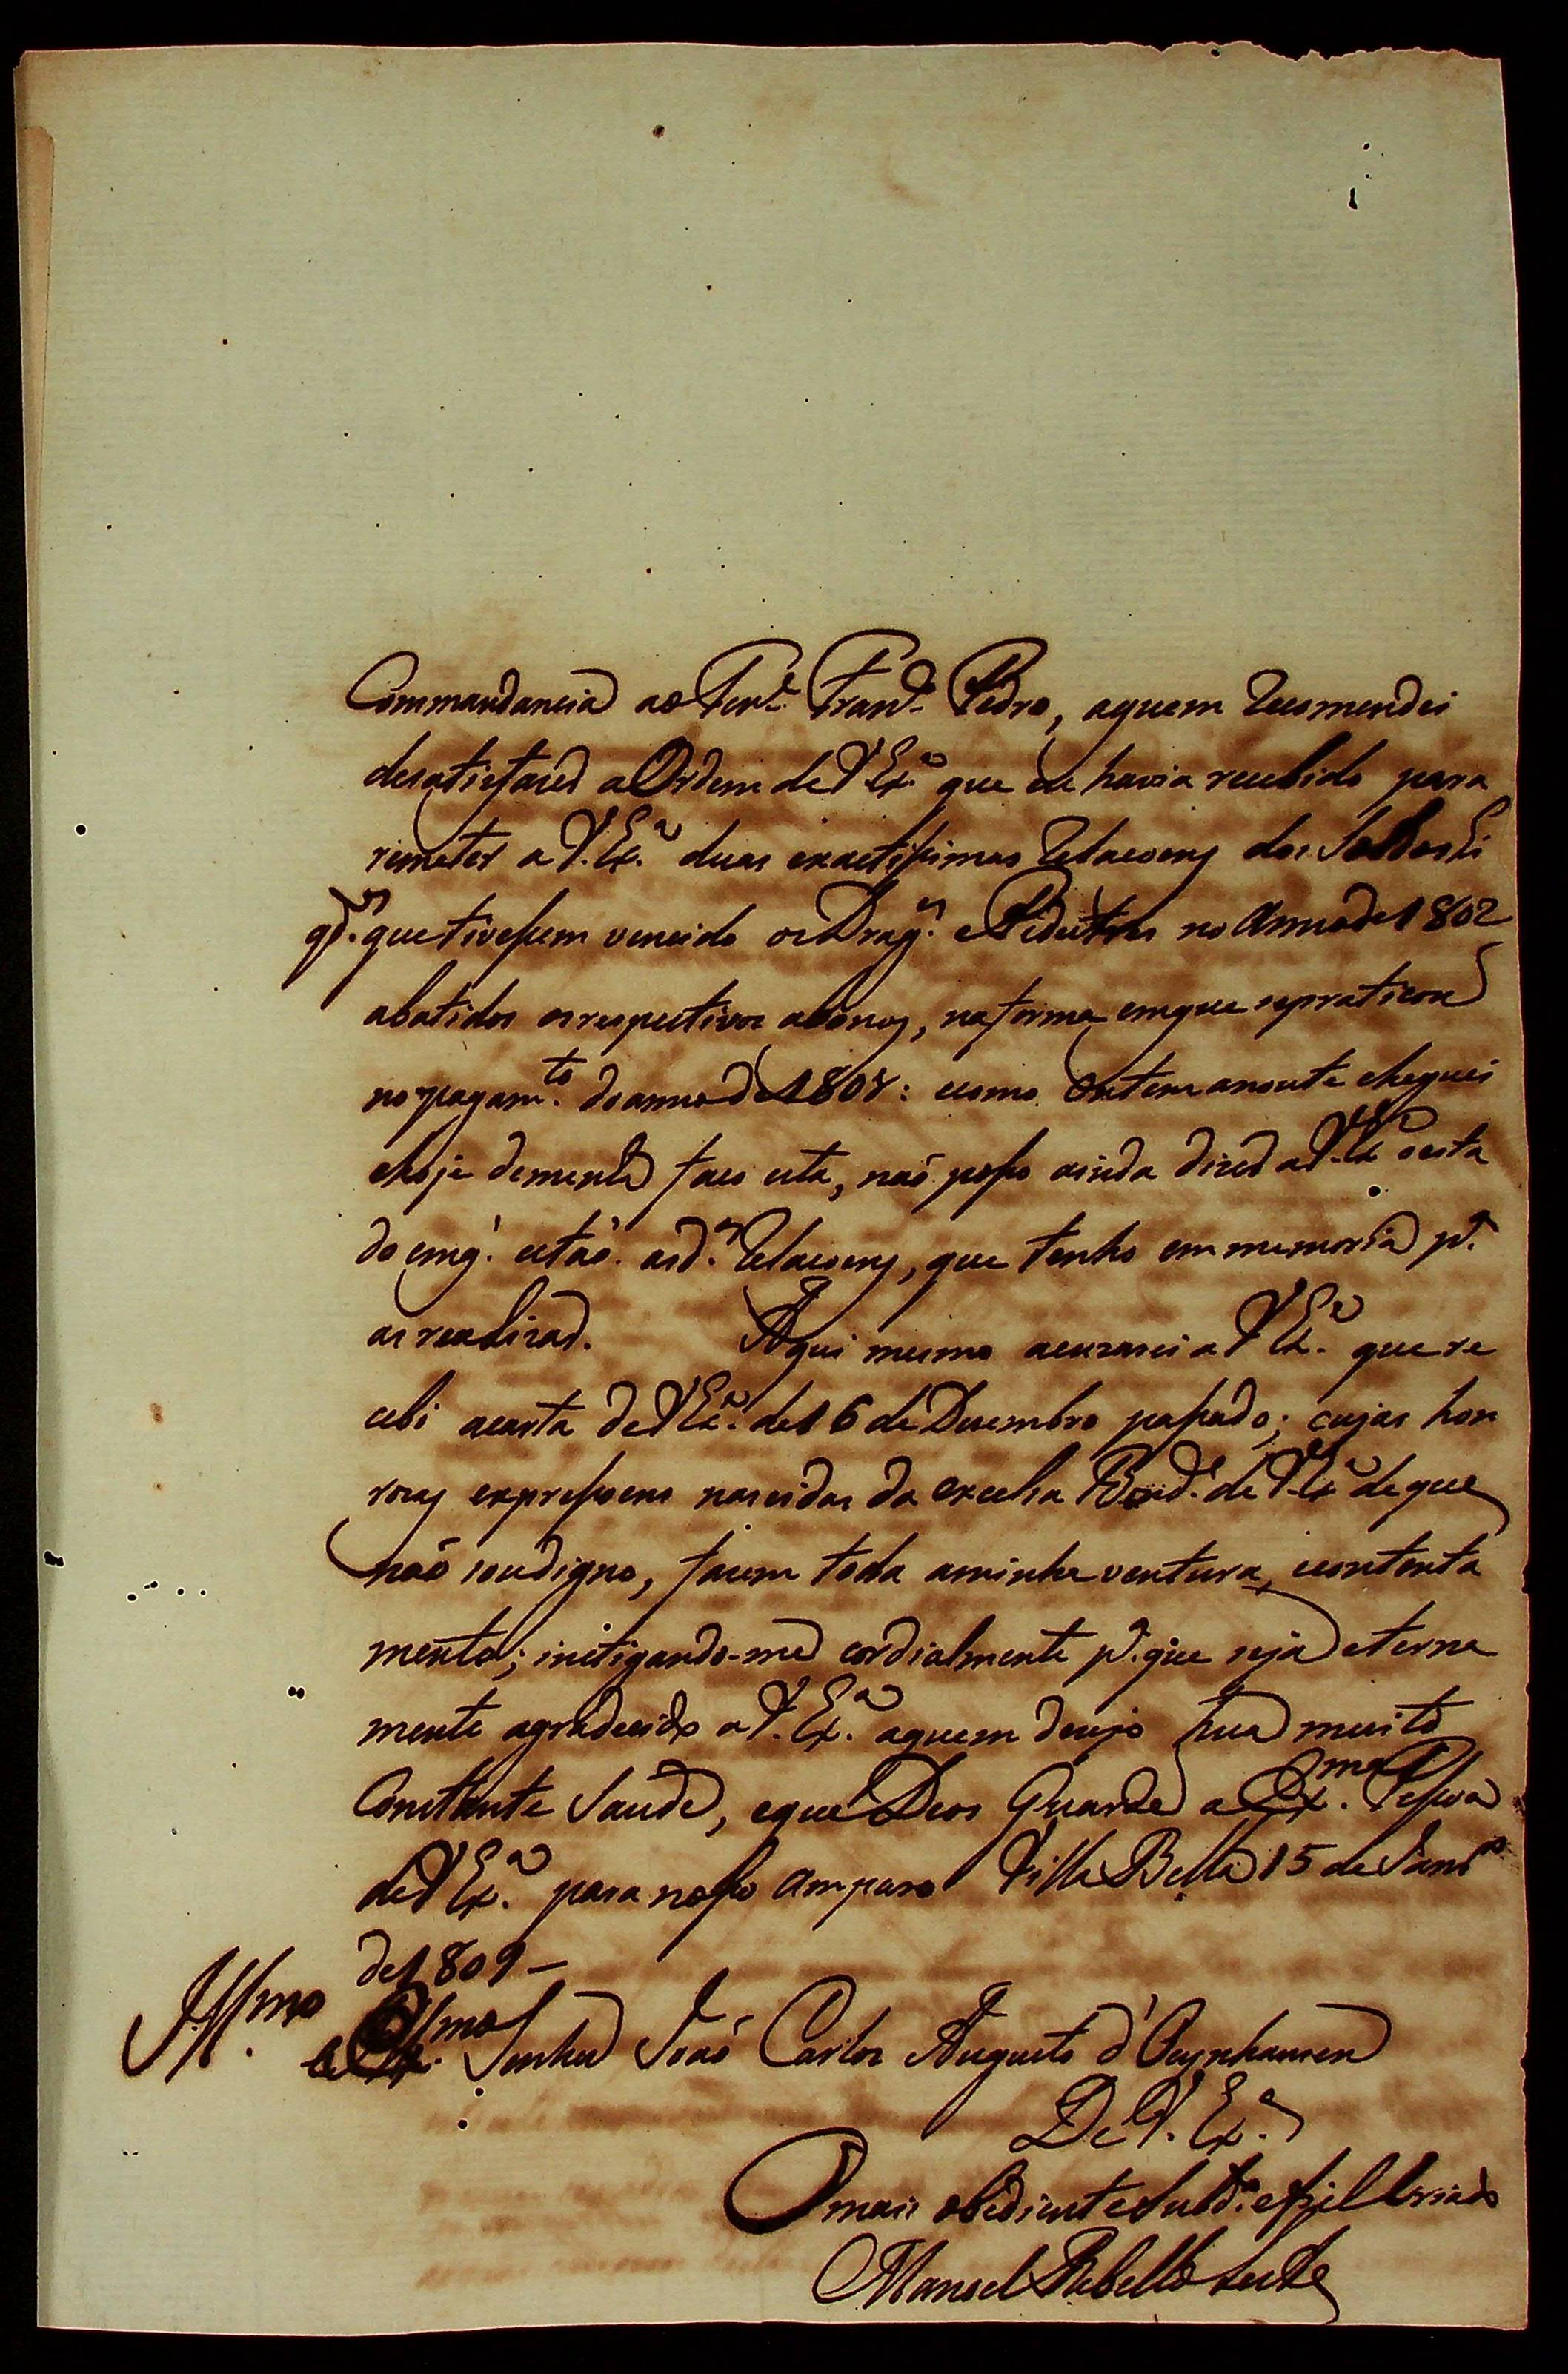 Commandancia ao Ten.e Fran.co Pedro, aquem Recomendei
desatisfazer a Ordem de V Ex.a que eu havia recebido para
remeter a V. Ex.a duas exactissimas Relacoens dos Soldos Li
q.dos que tivessem vencido os Drag.es e Pedestres no Anno de 1802
abatidos os respectivos abonos, na forma emque sepraticou
no pagam.to do anno de 1808: ecomo ontem anoute cheguei
ehoje demenhã faco esta, naõ posso ainda dizer a V. Ex.a oesta
do emq' estaõ as d.as Relacoens, que tenho em memoria p.a
as realizar. Aqui mesmo acuzarei a V Ex.a que re
cebi acarta de V Ex.a de 16 de Dezembro passado; cujas hon
rozas expressoens nascidas da excelsa Bond.e de V. Ex.a de que
naõ sou digno, fazem toda aminha ventura, econtenta
mento; instigando-me cordialmente p.a que seja eterna
mente agradecido a V. Ex.a aquem dezejo hua muito
Constante Saude, eque Deos Guarde a Ex.ma Pessoa
de V Ex.a para nosso amparo Villa Bella 15 de Janr.o
de 1809 –
Ill.mo e Ex.mo Senhor Joaõ Carlos Augusto d'Oeynhausen
De V. Ex.a
O mais obediente Subd.o efiel Criado
Manoel Rebello Leite